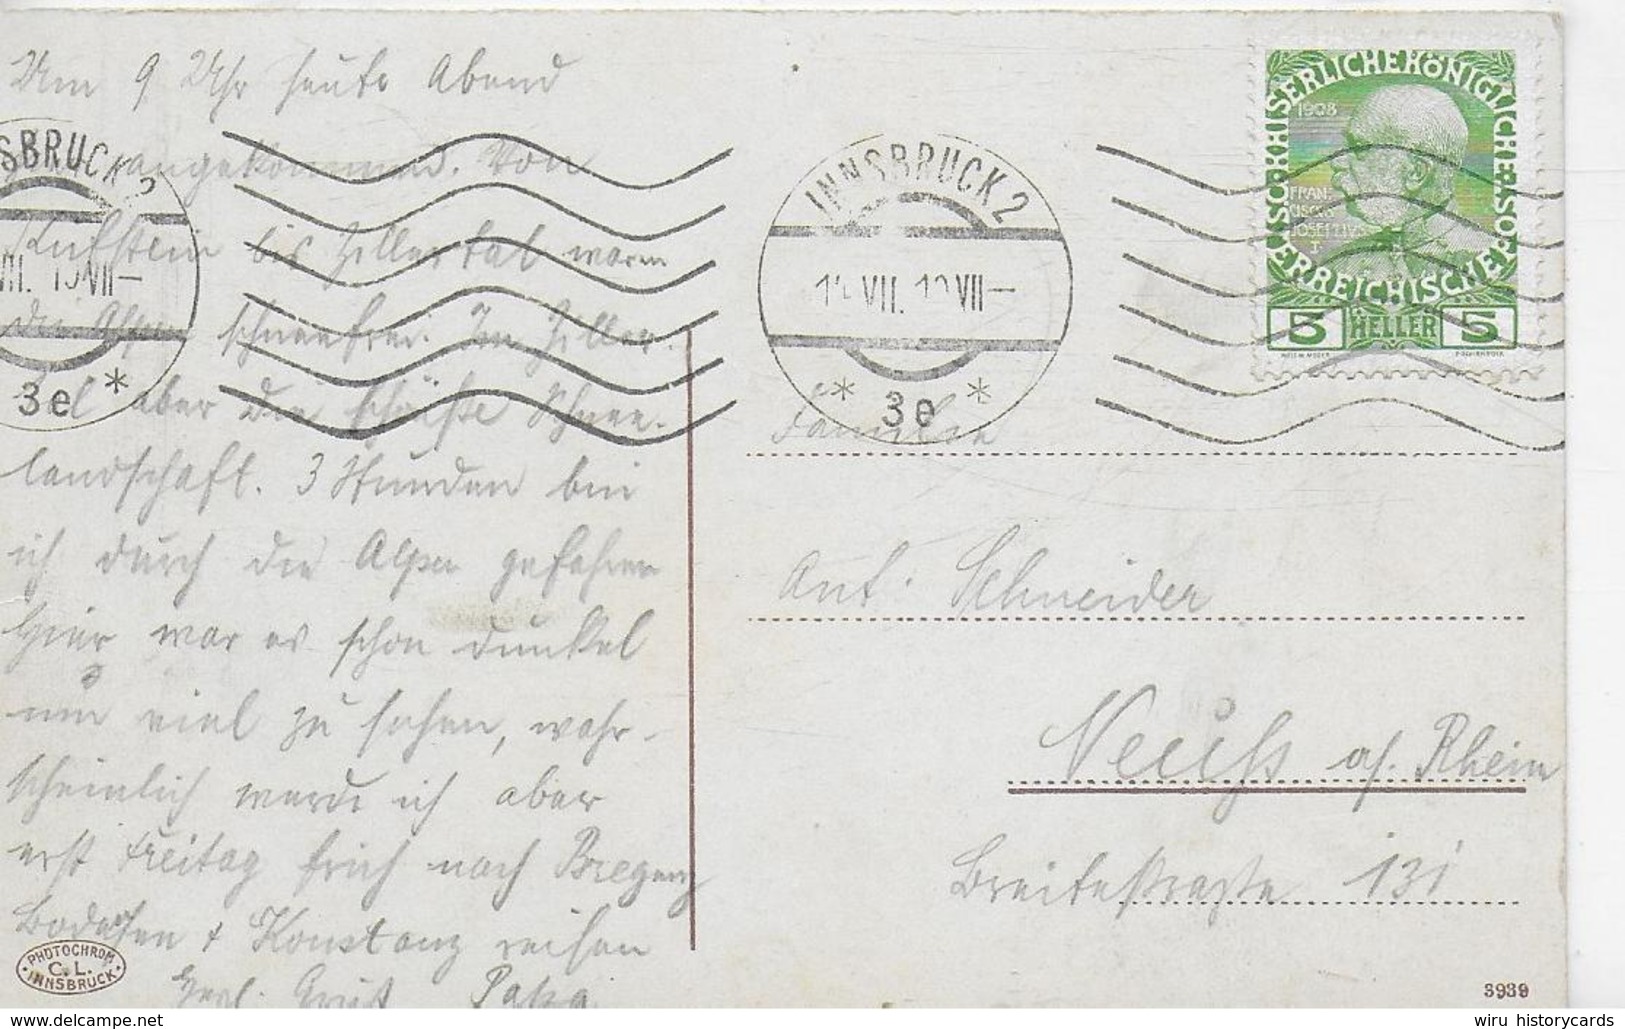 Um 9 Uhr heute Abend
angekommen. Von
Kufstein bis Zillertal waren
die Alpen schneefrei. Im Ziller-
tal aber die schönste Schnee-
landschaft. 3 Stunden bin
ich durch die Alpen gefahren
Hier war es schon dunkel
um viel zu sehen, wahr-
scheinlich werde ich aber
erst Freitag früh nach Bregenz
Bodensee + Konstanz reisen
Herzl. Gruß Papa
INNSBRUCK 2
VII
* 3e *
INNSBRUCK 2
14 VII. 1 VII–
* 3e *
KAISERLICHE KÖNIGLICHE
ÖSTERREICHISCHE POST
1908
FRAN
CISCVS
IOSEPHVS
I
5 HELLER 5
Familie
Ant. Schneider
Neuß a/. Rhein
Breitestraße 131
PHOTOCHROM
C. L.
INNSBRUCK
3939
wiru historycards
www.delcampe.net